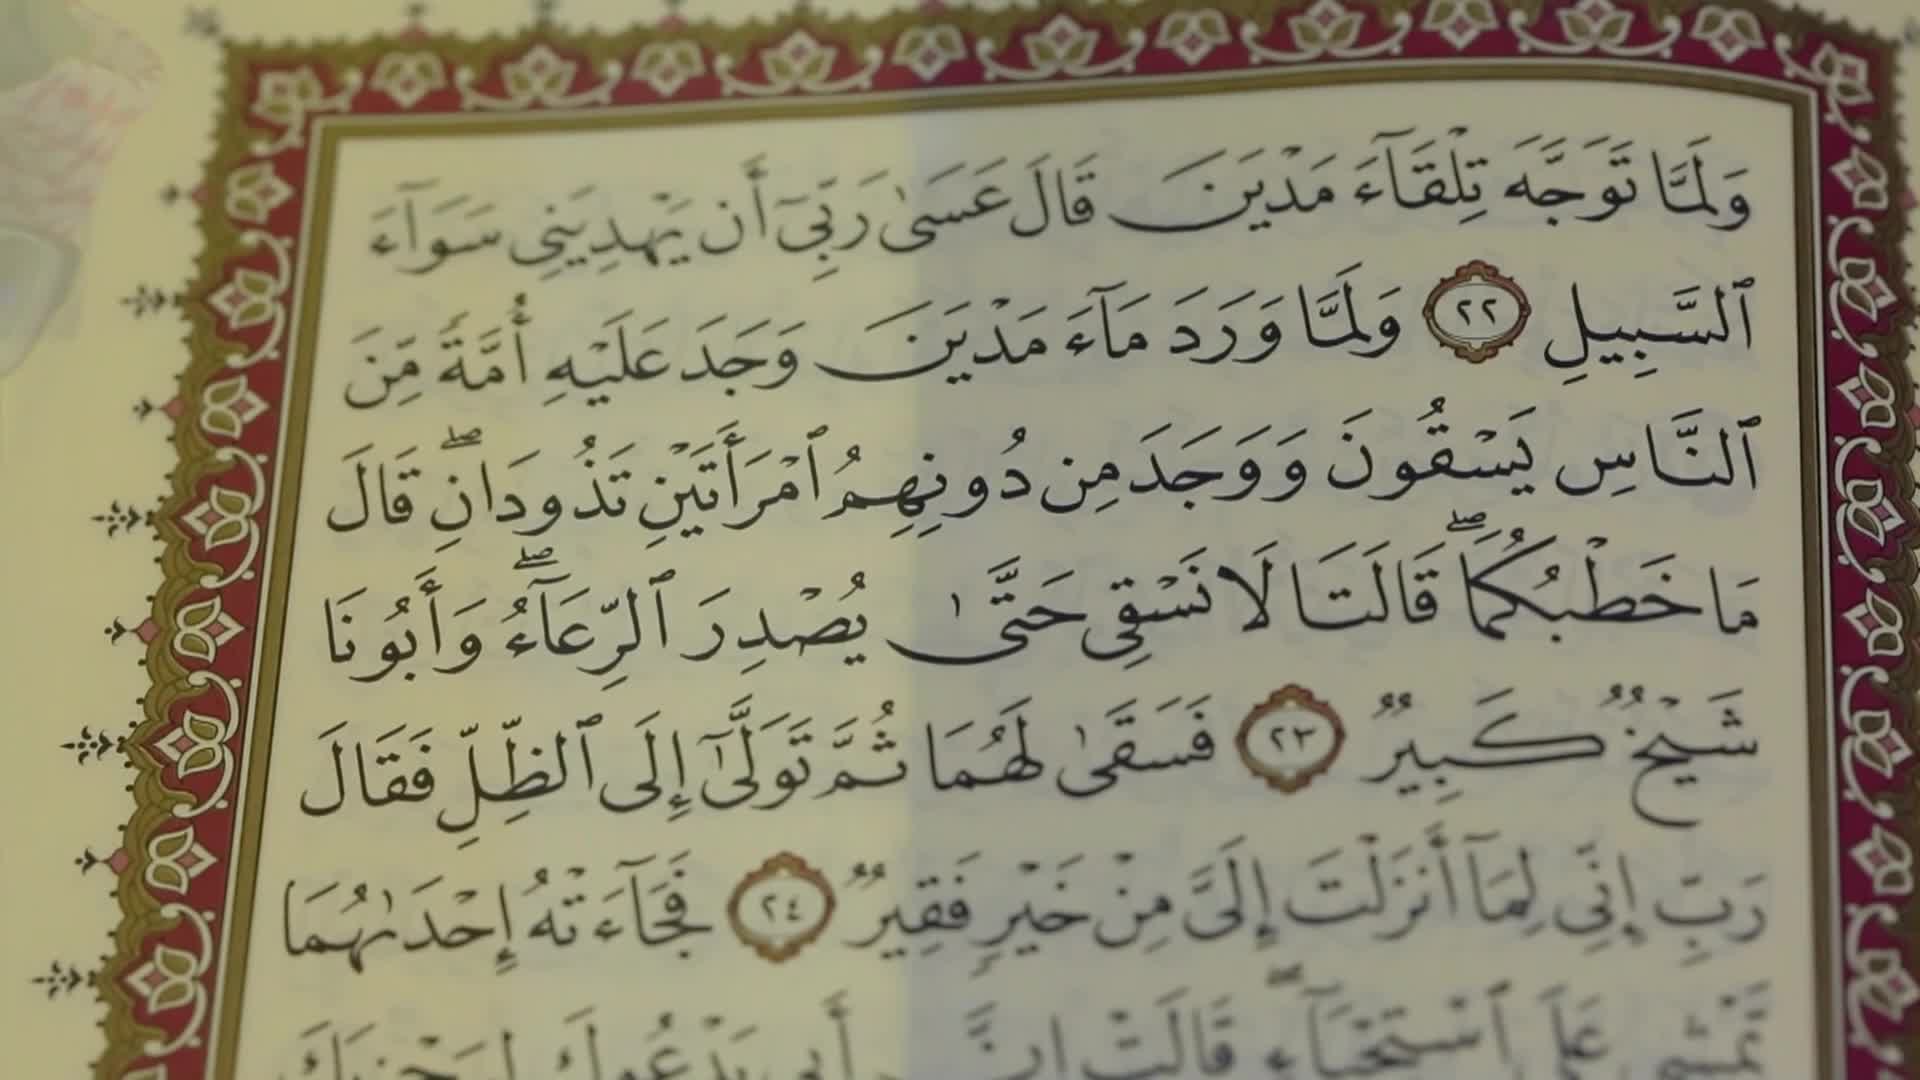 وَلَمَّا تَوَجَّهَ تِلْقَآءَ مَدْيَنَ قَالَ عَسَىٰ رَبِّيٓ أَن يَهْدِيَنِي سَوَآءَ
ٱلسَّبِيلِ ٢٢ وَلَمَّا وَرَدَ مَآءَ مَدْيَنَ وَجَدَ عَلَيْهِ أُمَّةً مِّنَ
ٱلنَّاسِ يَسْقُونَ وَوَجَدَ مِن دُونِهِمُ ٱمْرَأَتَيْنِ تَذُودَانِۖ قَالَ
مَا خَطْبُكُمَاۖ قَالَتَا لَا نَسْقِي حَتَّىٰ يُصْدِرَ ٱلرِّعَآءُۖ وَأَبُونَا
شَيْخٌ كَبِيرٌ ٢٣ فَسَقَىٰ لَهُمَا ثُمَّ تَوَلَّىٰٓ إِلَى ٱلظِّلِّ فَقَالَ
رَبِّ إِنِّي لِمَآ أَنزَلْتَ إِلَيَّ مِنْ خَيْرٍ فَقِيرٌ ٢٤ فَجَآءَتْهُ إِحْدَىٰهُمَا
تَمْشِي عَلَى ٱسْتِحْيَآءٍۖ قَالَتْ إِنَّ أَبِي يَدْعُوكَ لِيَجْزِيَكَ